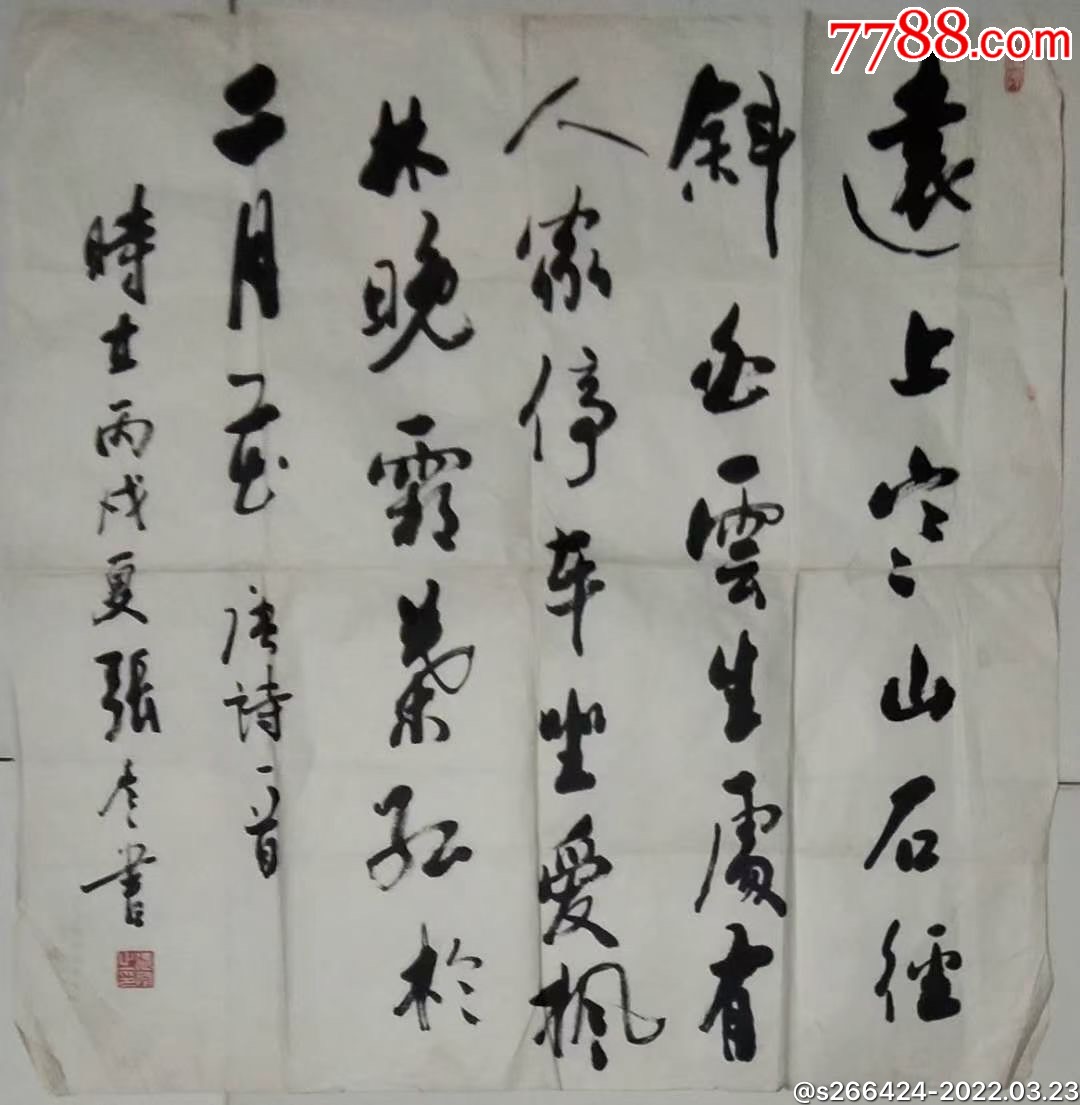 7788.com
遠上寒山石徑
斜白雲生處有
人家停車坐愛楓
林晚霜葉紅於
二月花 唐詩一首
時在丙戌夏張 書
@s266424-2022.03.23